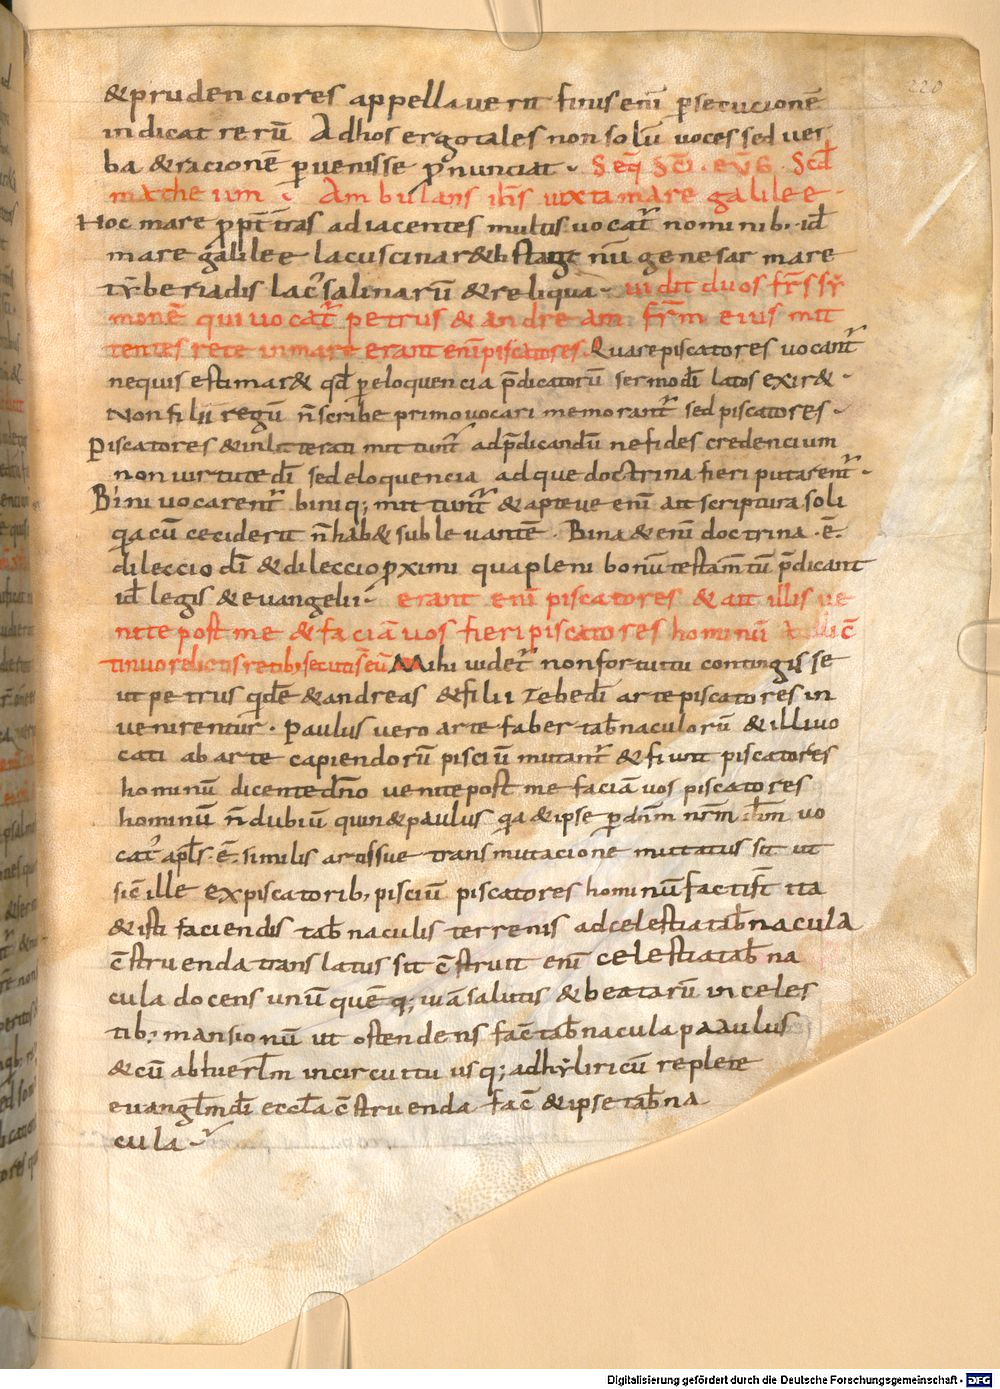 220
&prudenciores appellauerit finis enī p̄secucionē
indicat rerū Ad hos ergo tales non solū uoces sed uer
ba &racionē peruenisse p̄nunciat · Seq̄ sc̄i · euḡ · scd̄
matheum · Ambulans ih̄s iuxta mare galilee ·
Hoc mare ppt̄ tr̄as adiacentes multis uocat̄ nominib; id̄
mare galilee lacus cinar&h stagnū genesar mare
tẏberiadis lac̄ salinarū &reliqua · uidit duos fr̄s sẏ
monē qui uocat̄ petrus & andream fr̄m eius mit
tentes rete in mare erant enī piscatores Quare piscatores uocant̄
nequis estimar& qd̄ per eloquencia p̄dicatorū sermo dī latos exir& ·
Non filii regū n̄ scribe primo uocari memorant̄ sed piscatores ·
Piscatores &inliterati mittunt̄ ad p̄dicandū ne fides credencium
non uirtute dī sed eloquencia adque doctrina fieri putarent̄ ·
Bini uocarent̄ biniq; mittunt̄ & apte ue enī ait scriptura soli
qa cū ceciderit n̄ hab& subleuantē · Bina & enī doctrina · ē ·
dileccio dī &dileccio p̄ximi qua pleni bonū testam̄tū p̄dicant
id̄ legis & euangelii · erant enī piscatores & ait illis ue
nite post me & faciā uos fieri piscatores hominū
Mihi uidet̄ non fortuitu contingisse
ut petrus qidē &andreas &filii zebedī arte piscatores in
uenirentur · Paulus uero arte faber tab̄naculorū & illi uo
cati ab arte capiendorū pisciū mutant̄ & fiunt piscatores
hominū dicente dn̄o uenite post me faciā uos piscatores
hominū n̄ dubiū quin & paulus qa & ipse per dn̄m nr̄m ih̄m uo
cat̄ apl̄s · ē · similis artis sue transmutacione mutatus sit ut
sic̄ ille ex piscatorib; pisciū piscatores hominū facti st̄ ita
& isti faciendis tab̄naculis terrenis ad celestia tab̄nacula
c̄struenda translatus sit c̄struit enī celestia tab̄na
cula docens unūquēq; uiā salutis &beatarū in celes
tib; mansionū ut ostendens fac̄ tab̄nacula paaulus
& cū ab hierl̄m in circuitu usq; ad hẏliricū replete
euangl̄m dī eccl̄a c̄struenda fac̄ & ipse tab̄na
cula
Digitalisierung gefördert durch die Deutsche Forschungsgemeinschaft - DFG